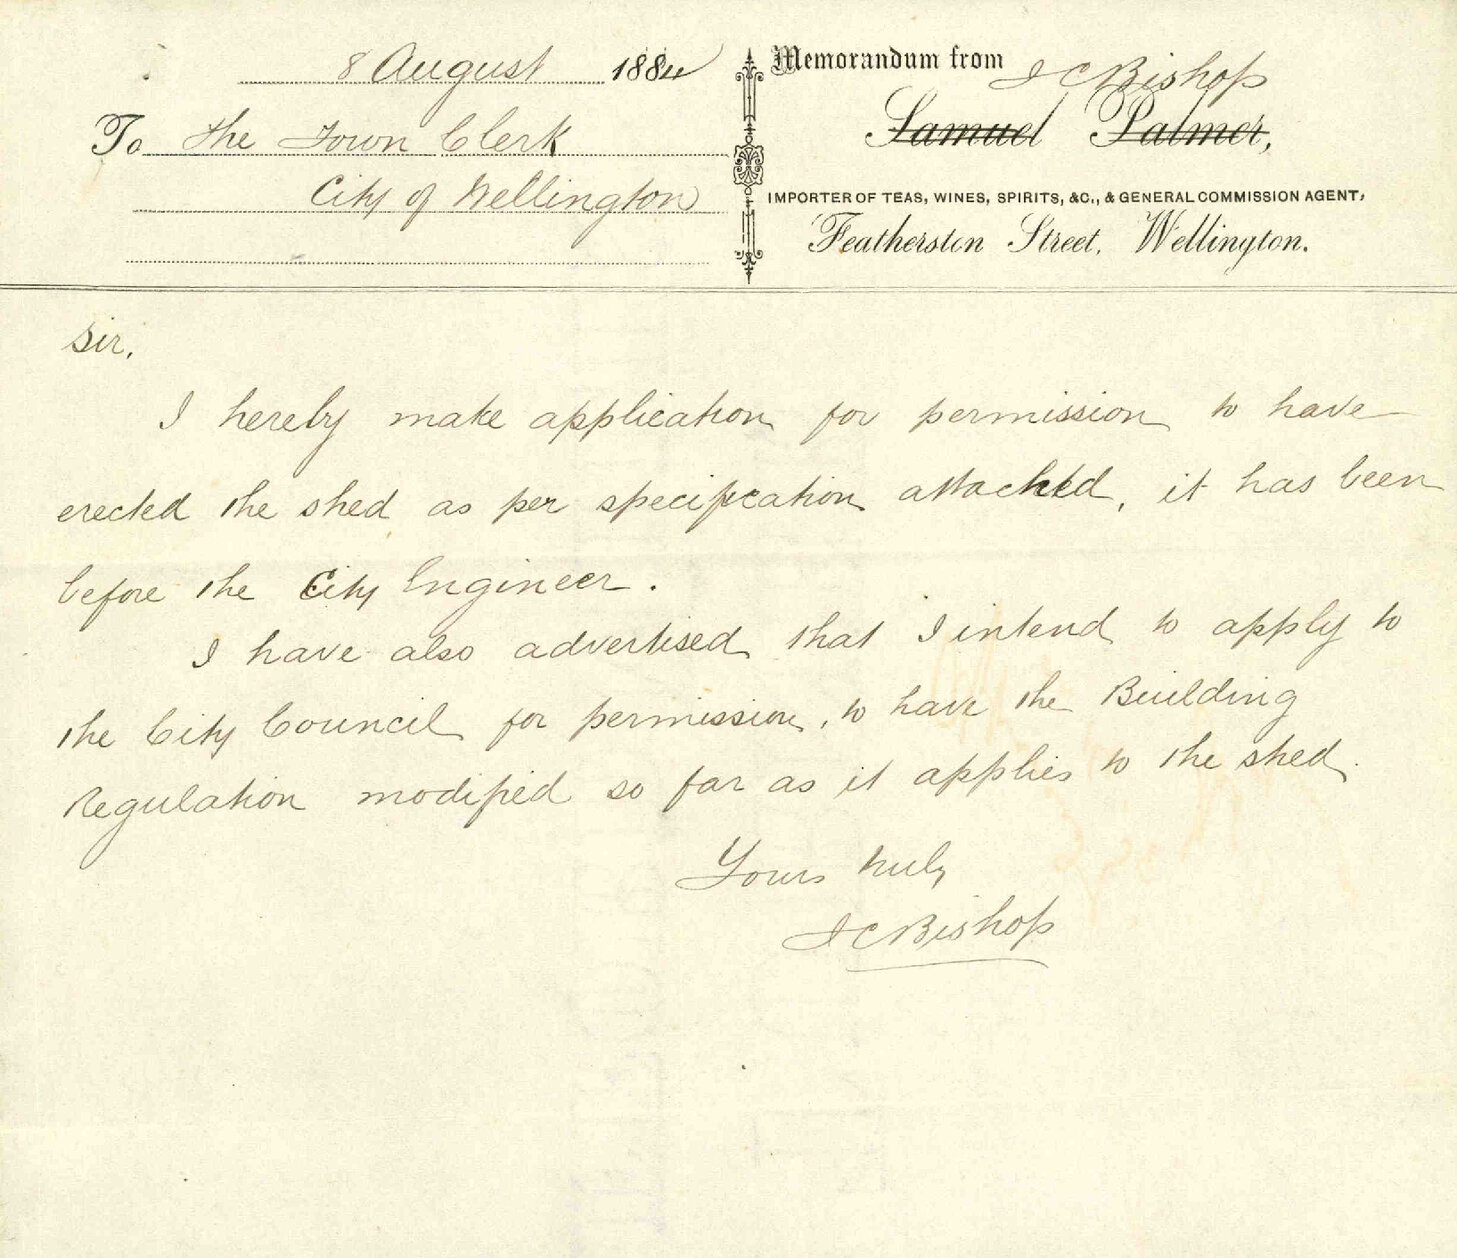 8 August 1884
To the Town Clerk
City of Wellington
Memorandum from J C Bishop
Samuel Palmer,
IMPORTER OF TEAS, WINES, SPIRITS, &C., & GENERAL COMMISSION AGENT,
Featherston Street, Wellington.
Sir,
I hereby make application for permission to have
erected the shed as per specification attached, it has been
before the City Engineer.
I have also advertised that I intend to apply to
the City Council for permission, to have the Building
Regulation modified so far as it applies to the shed.
Yours truly
J C Bishop